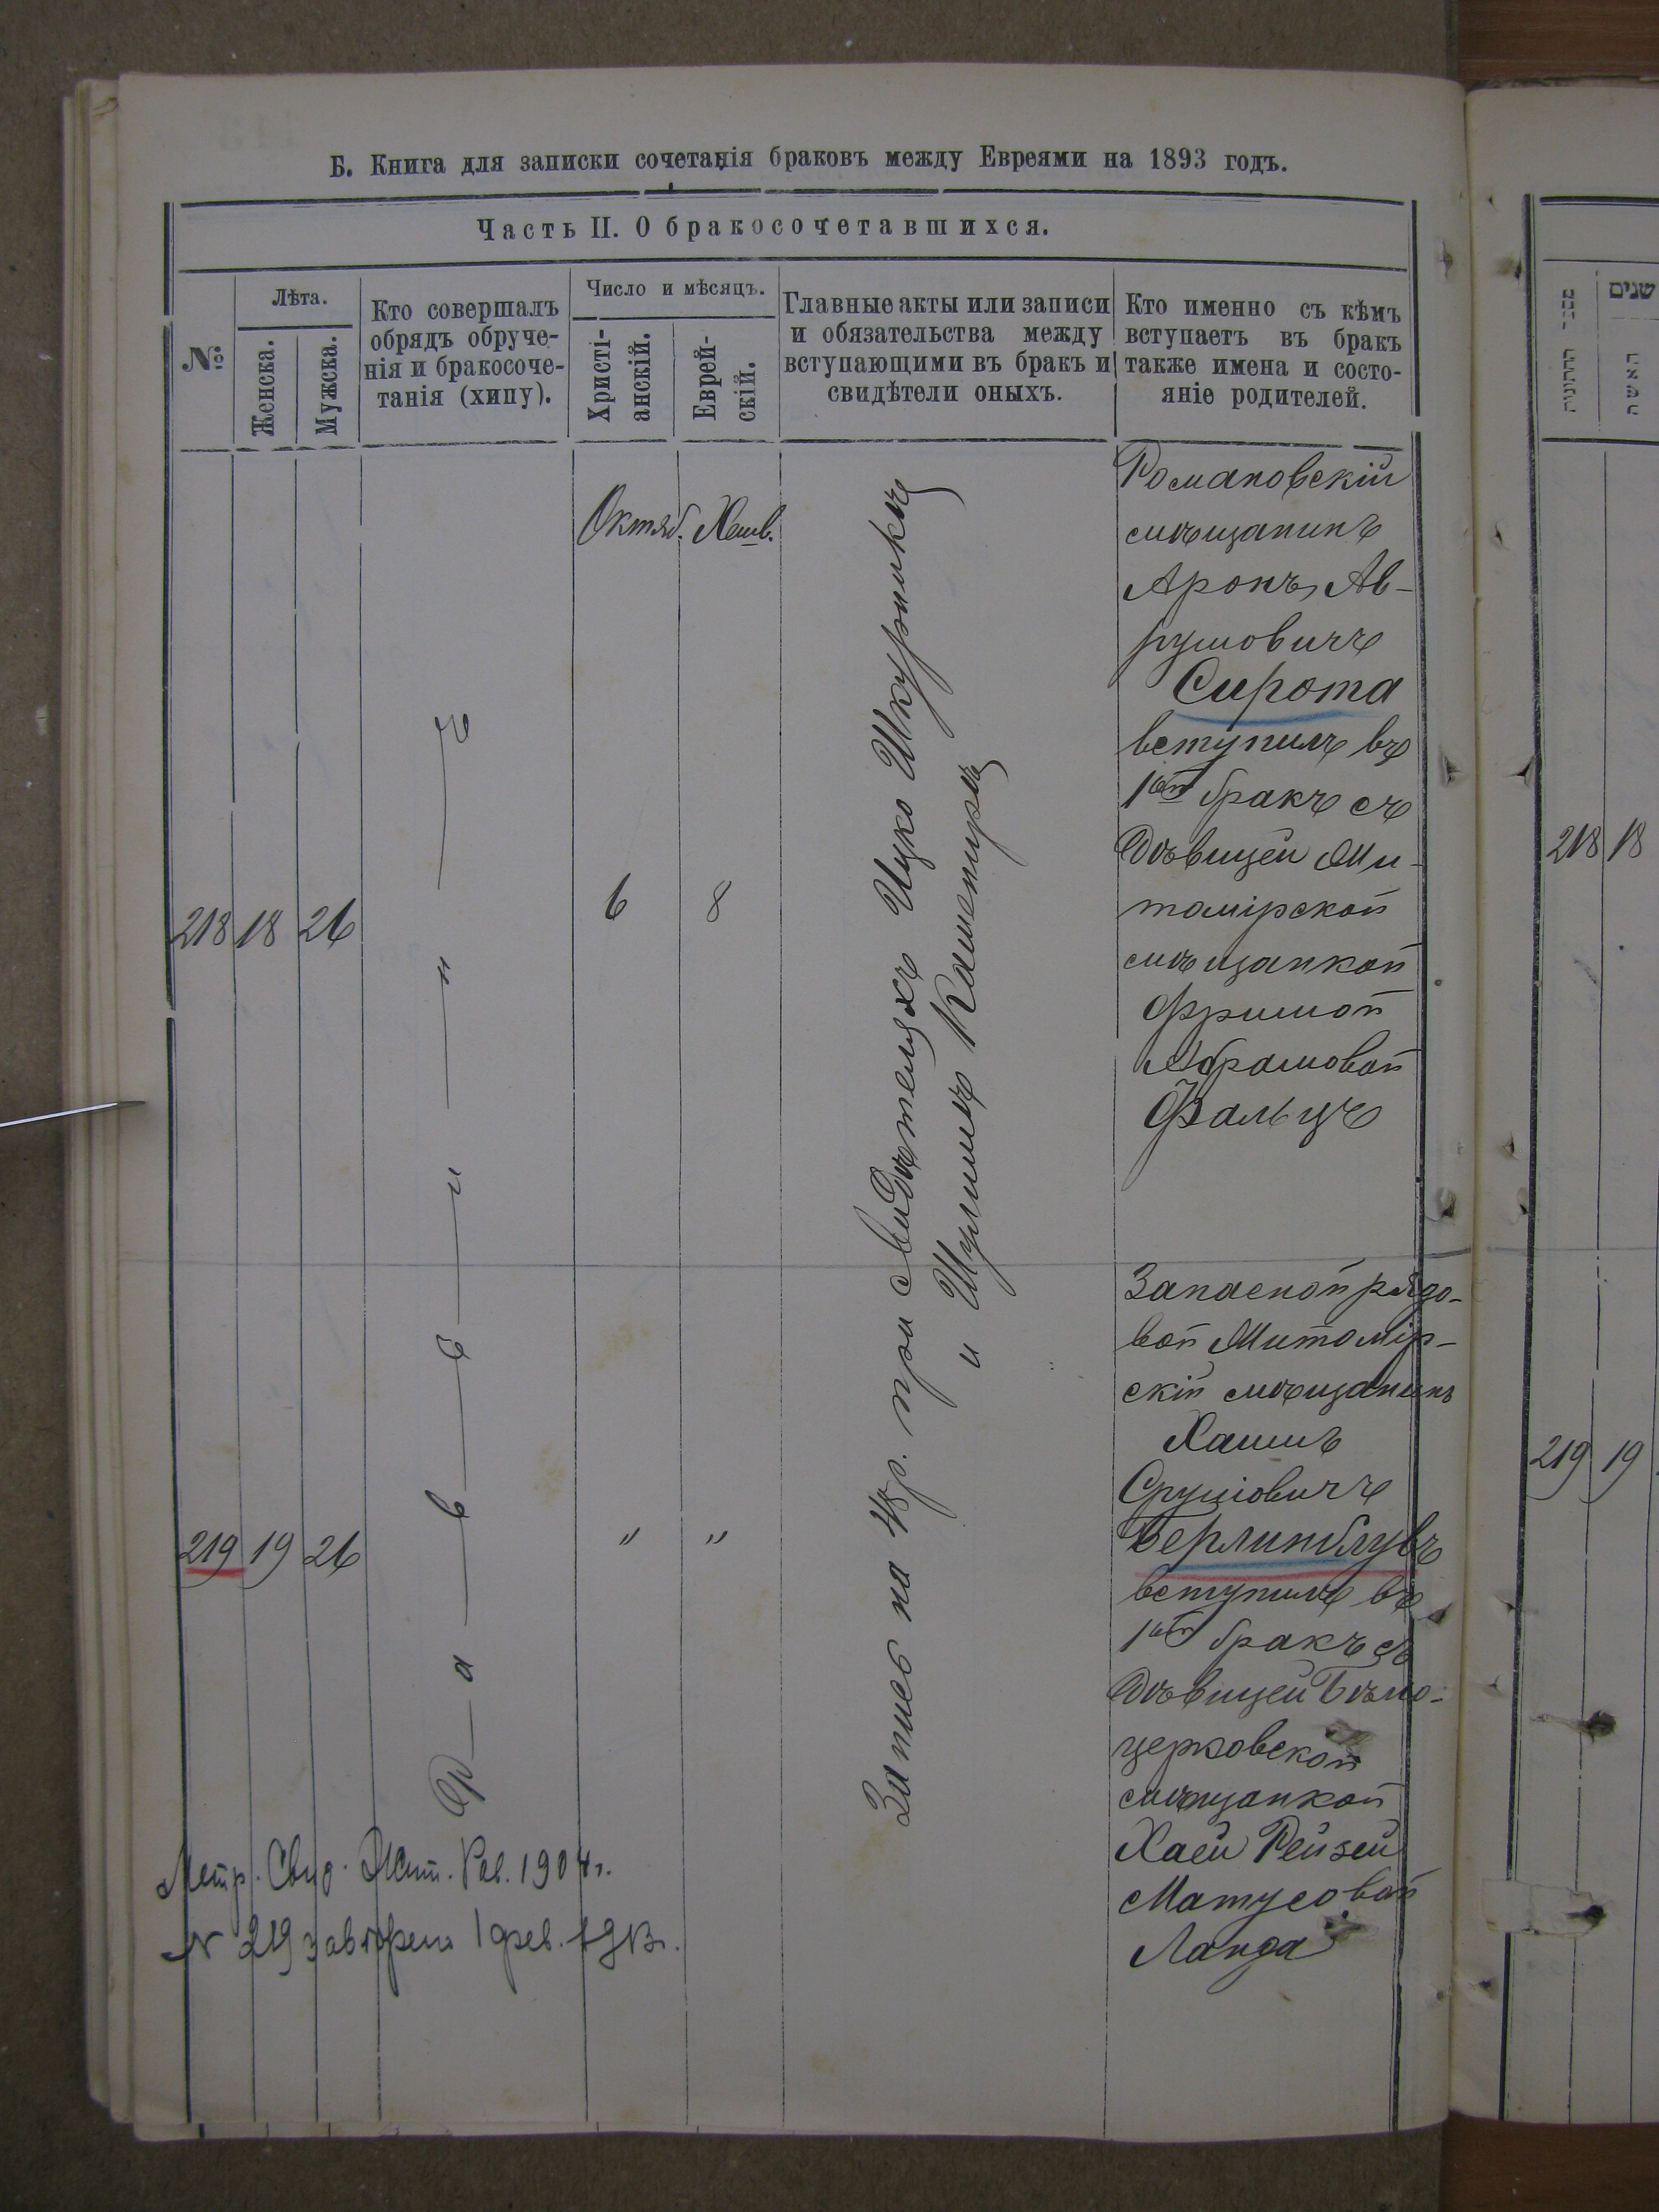 Б. Книга для записки сочетанія браковъ между Евреями на 1893 годъ.
Часть II. О бракосочетавшихся.
№
Лѣта.
Женска.
Мужска.
Кто совершалъ
обрядъ обруче-
нія и бракосоче-
танія (хипу).
Число и мѣсяцъ.
Христі-
анскій.
Еврей-
скій.
Главные акты или записи
и обязательства между
вступающими въ бракъ и
свидѣтели оныхъ.
Кто именно съ кѣмъ
вступаетъ въ бракъ
также имена и состо-
яніе родителей.
Октяб. Хешв.
218 18 26
6 8
Р а в в и н ъ
Запись на 48 р. при свидѣтеляхъ Ицко Шкурникъ
и Шулимъ Кашетуръ
Романовскій
мѣщанинъ
Аронъ Ав-
румовичъ
Сирота
вступилъ въ
1ый бракъ съ
дѣвицей Жи-
томірской
мѣщанкой
Фримой
Абрамовой
Фальцъ
219 19 26
" "
Запасной рядо-
вой Житомір-
скій мѣщанинъ
Хаимъ
Сруліовичъ
Берлинблувъ
вступилъ въ
1ый бракъ съ
дѣвицей Бѣло-
церковской
мѣщанкой
Хаей Рейзей
Матусовой
Ланда
Метр. Свид. Жит. Рав. 1904 г.
№ 219 1 фев.
שנים
האשה
218 18
219 19